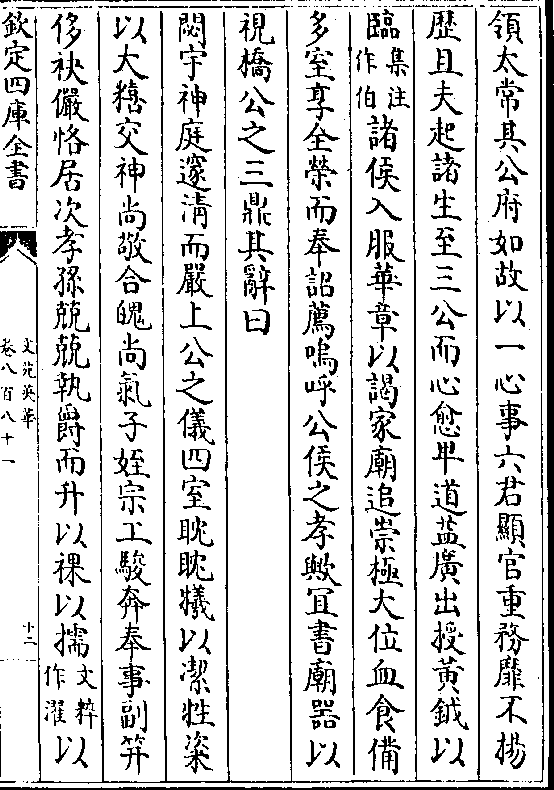 領太常其公府如故以一心事六君顯官重務靡不揚
歷且夫起諸生至三公而心愈卑道益廣出授黃鉞以
臨集注作伯諸侯入服華章以謁家廟追崇極大位血食備
多室享全榮而奉詔薦嗚呼公侯之孝歟宜書廟器以
視橋公之三鼎其辭曰
閟宇神庭邃清而嚴上公之儀四室眈眈犧以潔牲粢
以大糦交神尚敬合魄尚氣子姪宗工駿奔奉事副笄
侈袂儼恪居次孝孫兢兢執爵而升以祼以擩文粹作濯以
欽定四庫全書
文苑英華
卷八百八十一
十二